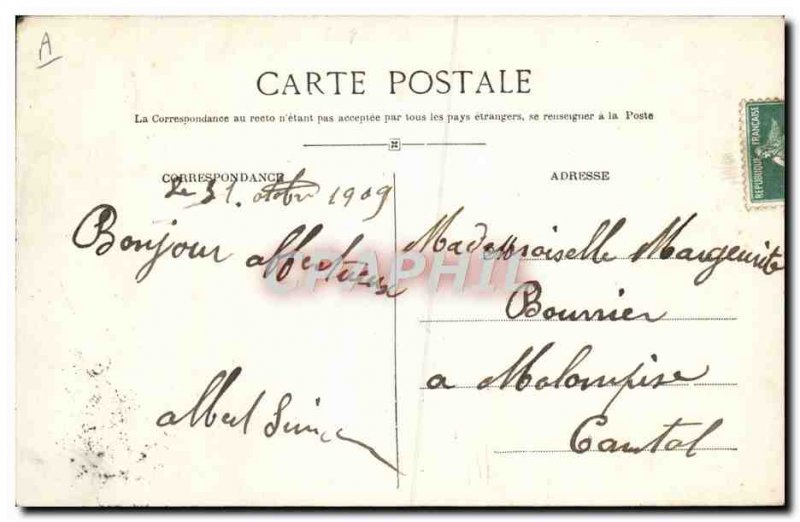 A
CARTE POSTALE
La Correspondance au recto n'étant pas acceptée par tous les pays étrangers, se renseigner à la Poste
CORRESPONDANCE
Le 31. octobre 1909
Bonjour affectueux
albert
ADRESSE
REPUBLIQUE FRANÇAISE
Mademoiselle Marguerite
Bournier
a Molompise
Cantal
CPAPHIL